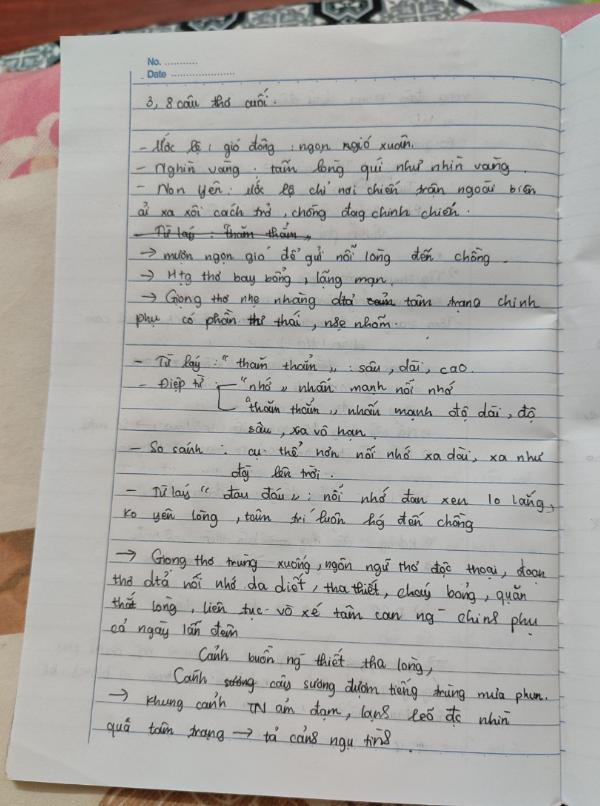 No. ...........
Date .....................
3, 8 câu thơ cuối.
- Ước lệ: gió đông: ngọn ngió xuân.
- Nghìn vàng: tấm lòng quí như nhìn vàng.
- Non Yên: ước lệ chỉ nơi chiến trấn ngoài biên
ải xa xôi cách trở, chồng đag chinh chiến.
- Từ láy: "thăm thẳm"
→ mượn ngọn gió để gửi nỗi lòng đến chồng.
→ Htg thơ bay bổng, lãng mạn.
→ Giọng thơ nhẹ nhàng dtả tâm trạng chinh
phụ có phần thư thái, nhẹ nhõm.
- Từ láy: "thăm thẳm": sâu, dài, cao.
- Điệp từ: "nhớ" nhấn mạnh nỗi nhớ
"thăm thẳm" nhấn mạnh độ dài, độ
sâu, xa vô hạn.
- So sánh: cụ thể hơn nỗi nhớ xa dài, xa như
đg lên trời.
- Từ láy "đau đáu": nỗi nhớ đan xen lo lắng,
ko yên lòng, tâm trí luôn hg đến chồng
→ Giọng thơ trùng xuống, ngôn ngữ thơ độc thoại, đoạn
thơ dtả nỗi nhớ da diết, tha thiết, cháy bỏng, quặn
thắt lòng, liên tục vò xé tâm can ng chinh phụ
cả ngày lẫn đêm
Cảnh buồn ng thiết tha lòng,
Cành cây sương đượm tiếng trùng mưa phun.
→ khung cảnh TN ảm đạm, lạnh lẽo đc nhìn
quả tâm trạng → tả cảnh ngụ tình.